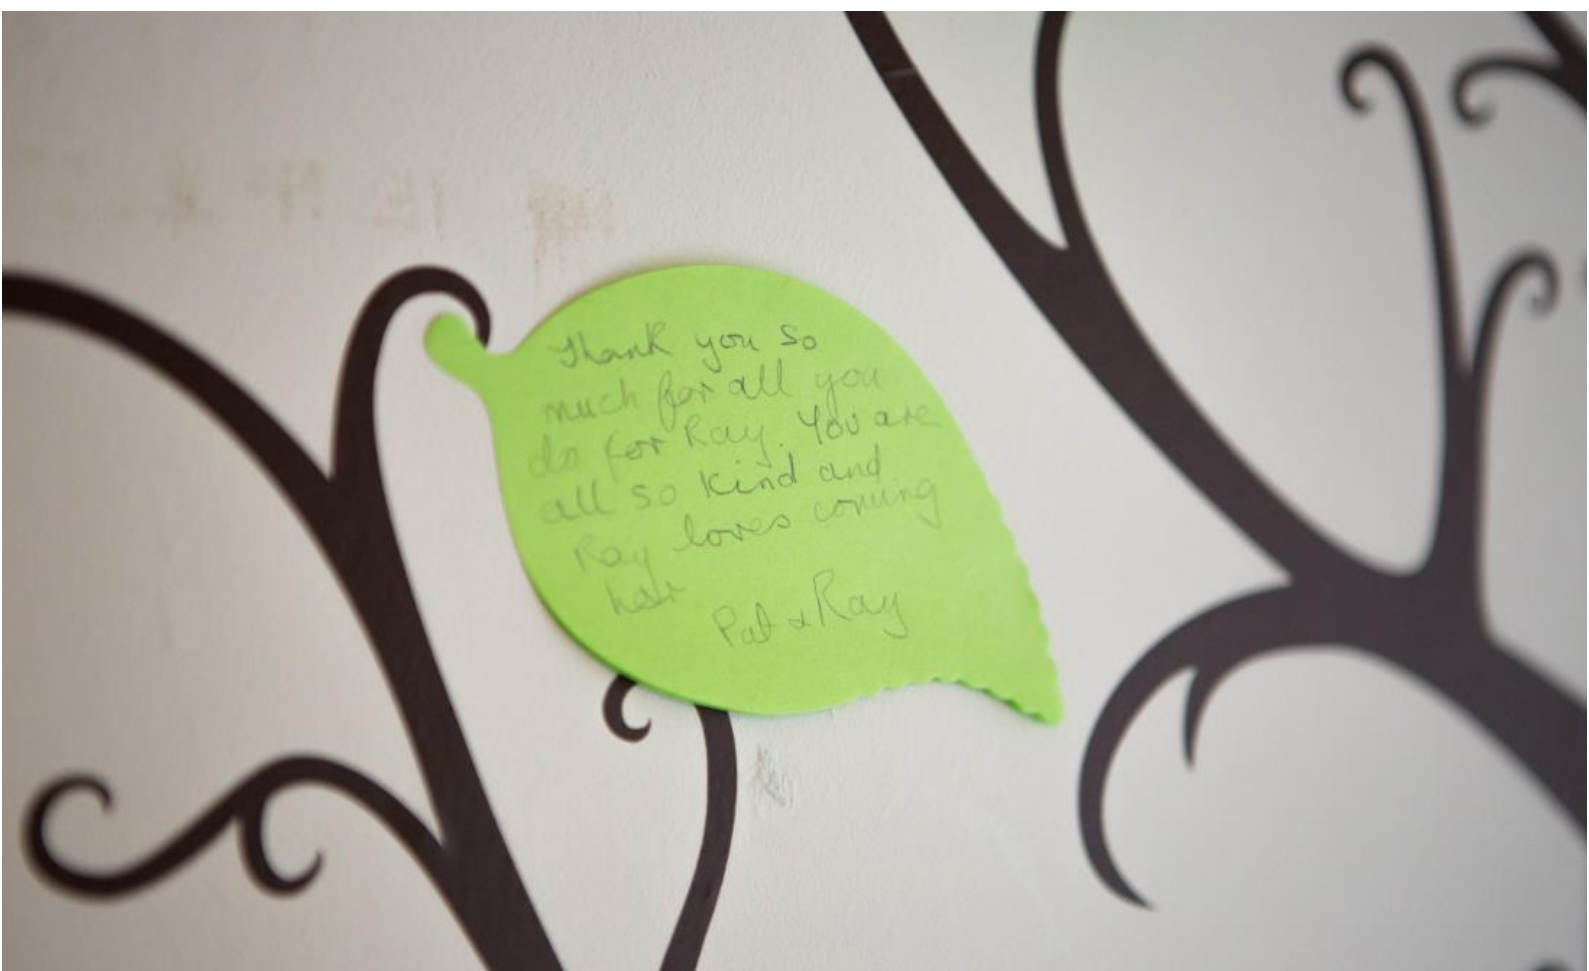 Thank you so
much for all you
do for Ray. You are
all so kind and
Ray loves coming
here
Pat & Ray